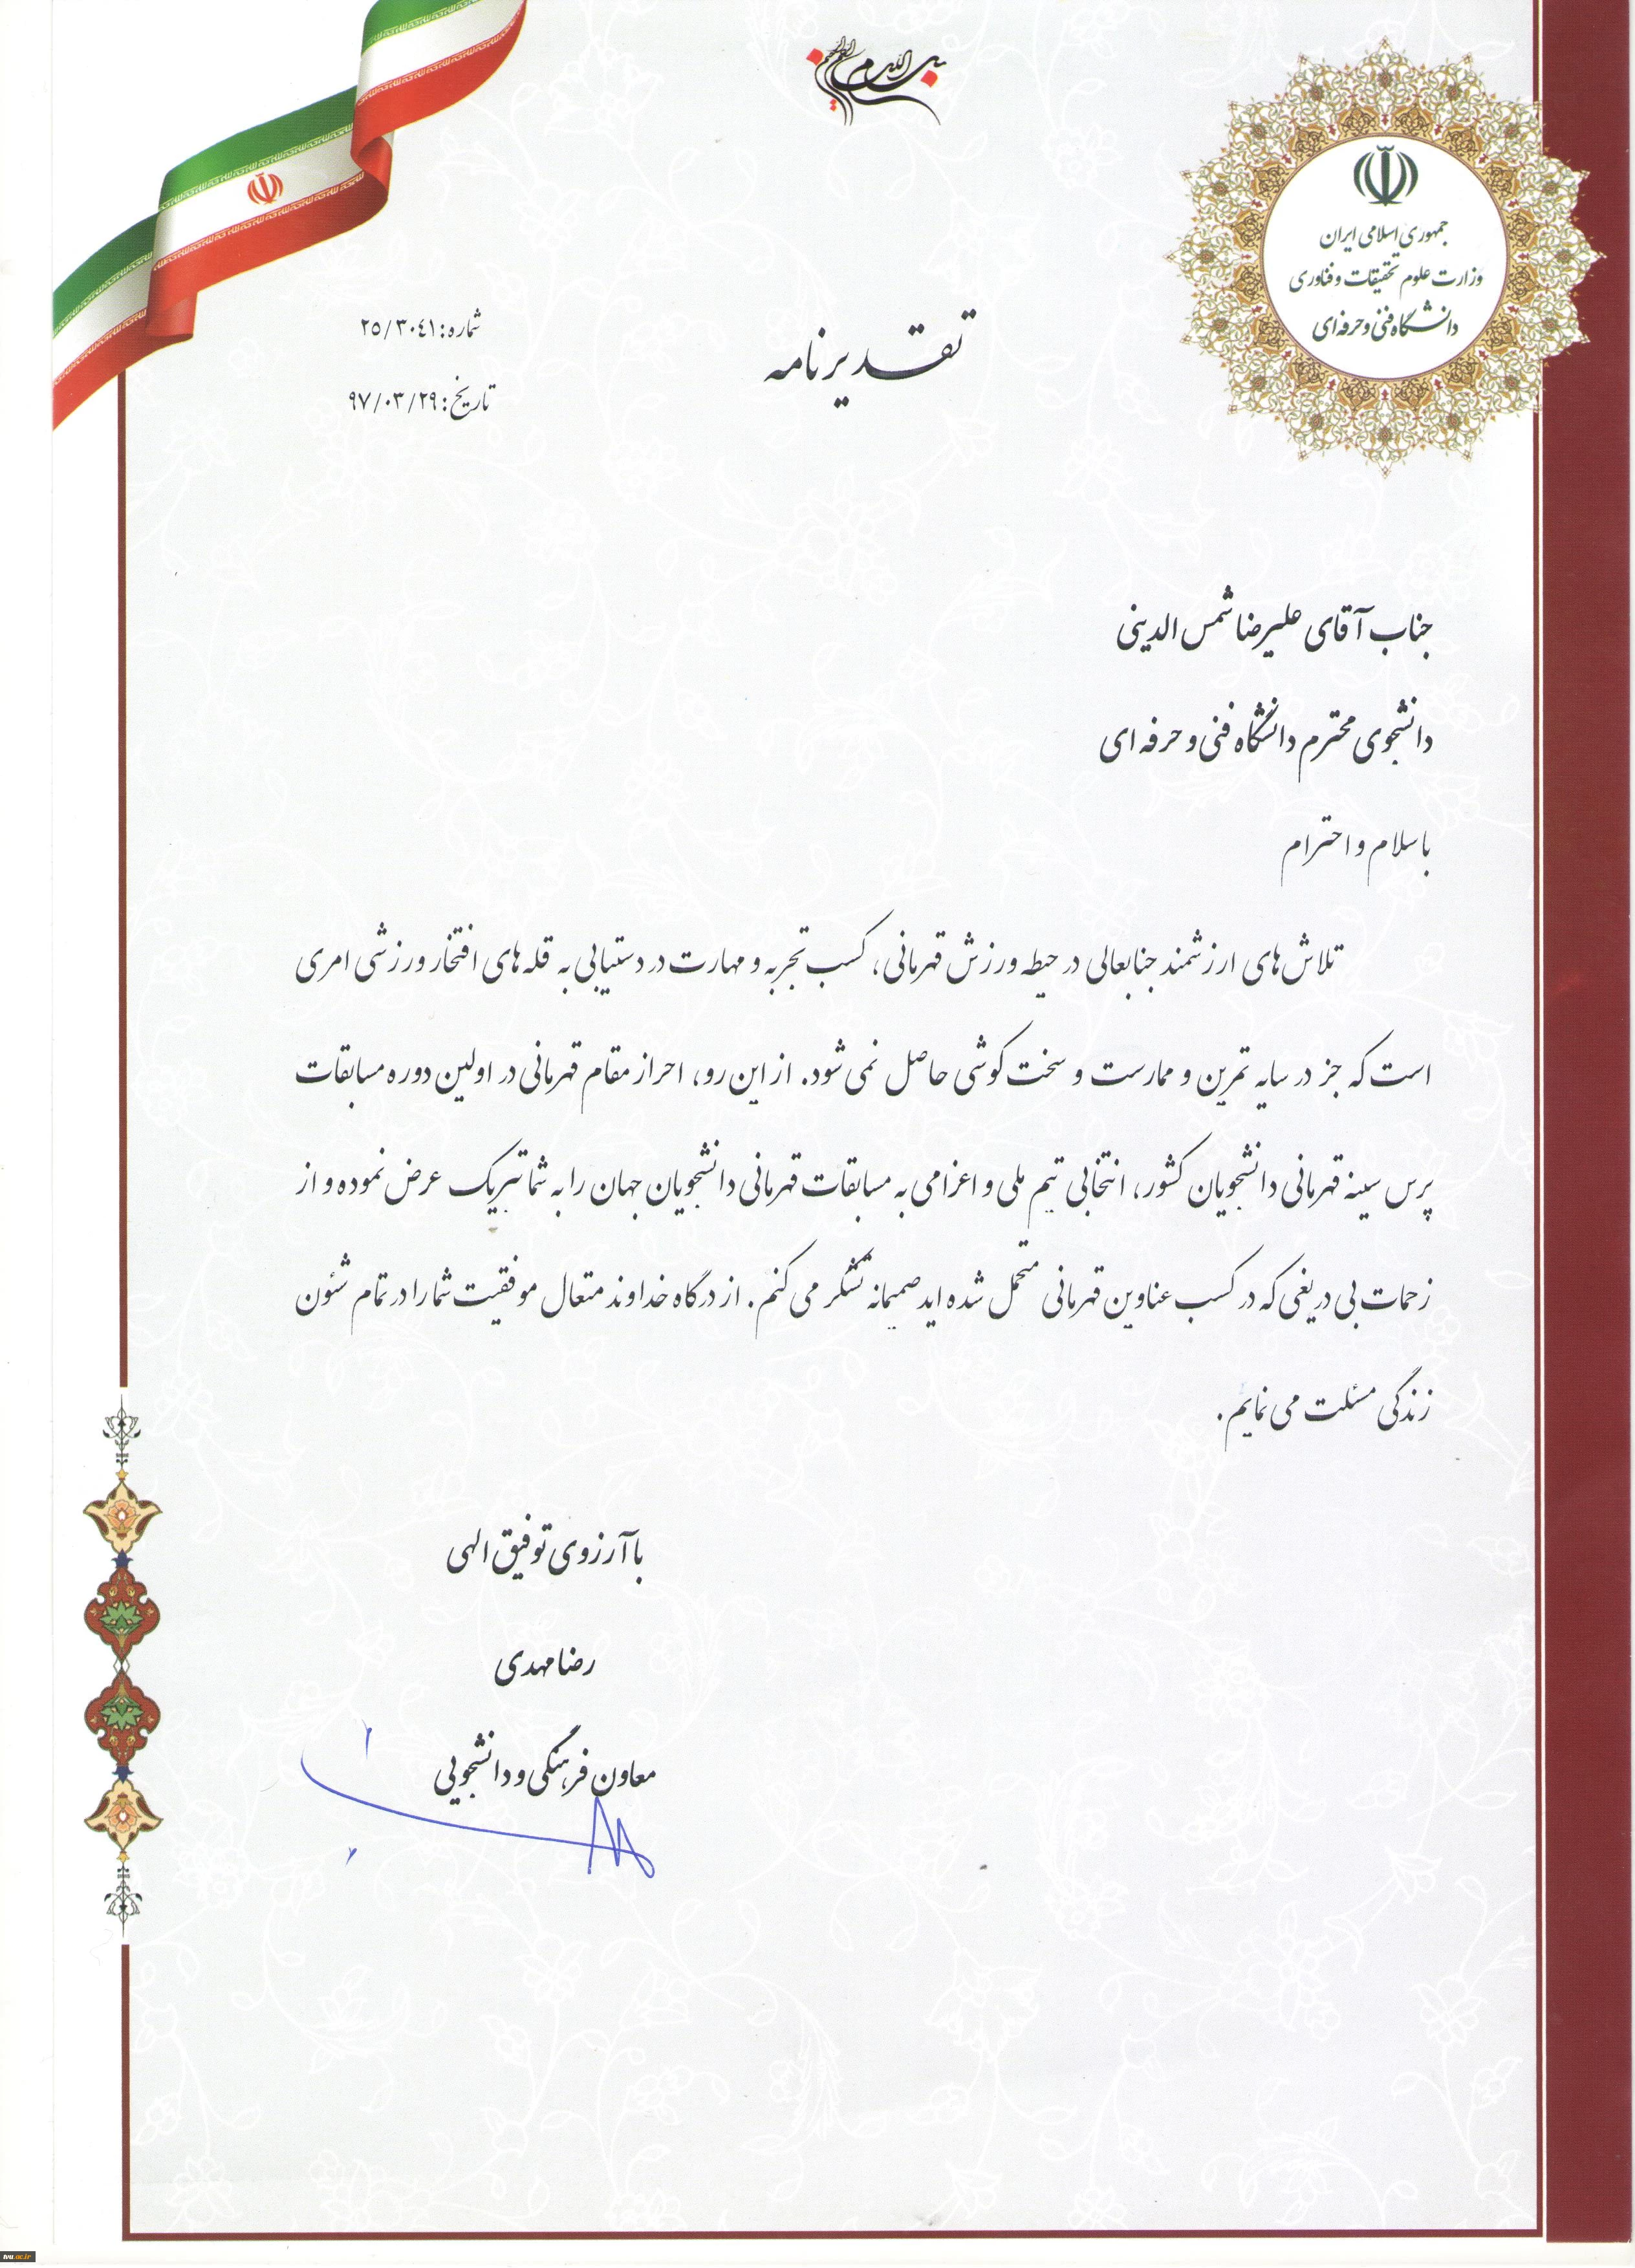 بسم الله الرحمن الرحیم
جمهوری اسلامی ایران
وزارت علوم تحقیقات و فناوری
دانشگاه فنی و حرفه ای
شماره: ۲۵/۳۰۴۱
تاریخ: ۹۷/۰۳/۲۹
تقدیرنامه
جناب آقای علیرضا شمس الدینی
دانشجوی محترم دانشگاه فنی و حرفه ای
با سلام و احترام
تلاش های ارزشمند جنابعالی در حیطه ورزش قهرمانی، کسب تجربه و مهارت در دستیابی به قله های افتخار ورزشی امری
است که جز در سایه تمرین و ممارست و سخت کوشی حاصل نمی شود. از این رو، احراز مقام قهرمانی در اولین دوره مسابقات
پرس سینه قهرمانی دانشجویان کشور، انتخابی تیم ملی و اعزامی به مسابقات قهرمانی دانشجویان جهان را به شما تبریک عرض نموده و از
زحمات بی دریغی که در کسب عناوین قهرمانی متحمل شده اید صمیمانه تشکر می کنم. از درگاه خداوند متعال موفقیت شما را در تمام شئون
زندگی مسئلت می نمایم.
با آرزوی توفیق الهی
رضا مهدی
معاون فرهنگی و دانشجویی
tvu.ac.ir